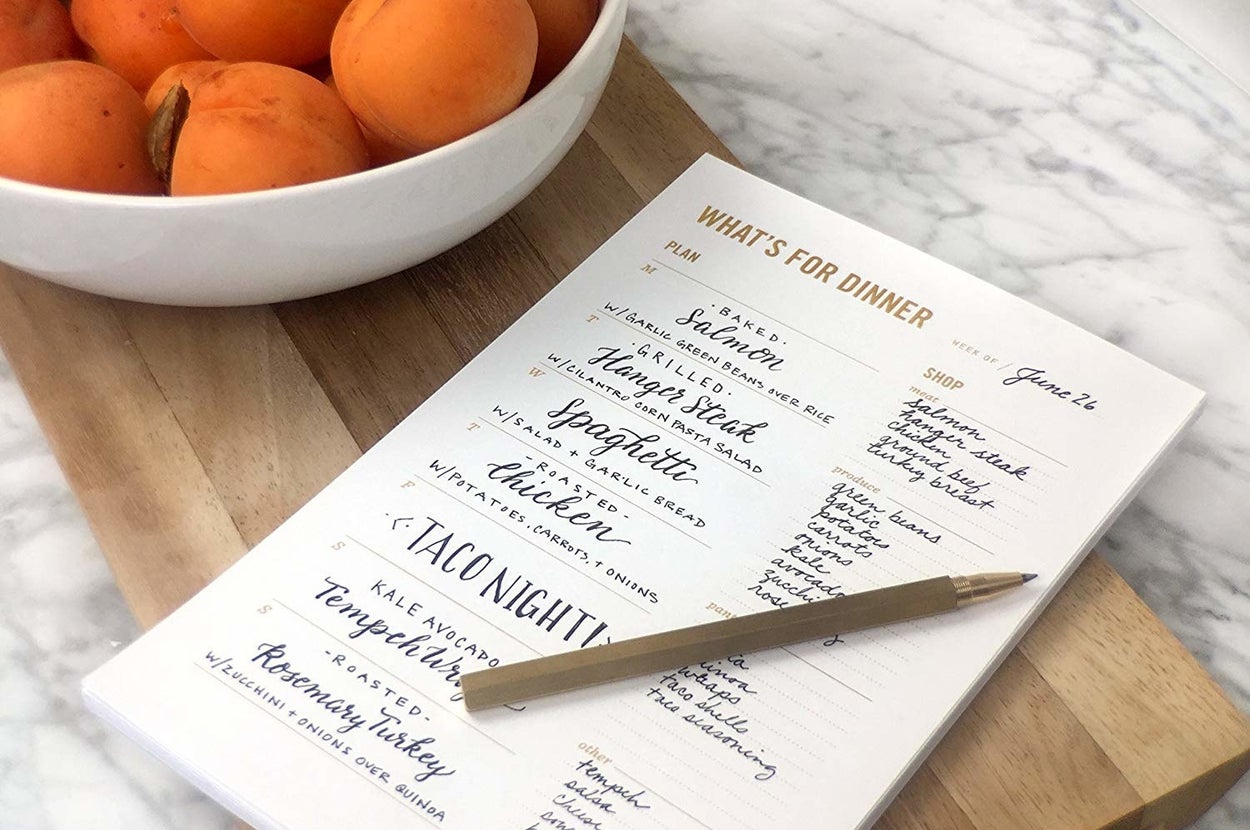 WHAT'S FOR DINNER
WEEK OF / June 26
PLAN
M
·BAKED·
Salmon
W/GARLIC GREEN BEANS OVER RICE
T
·GRILLED·
Hanger Steak
W/CILANTRO CORN PASTA SALAD
W
Spaghetti
W/SALAD + GARLIC BREAD
T
-ROASTED-
Chicken
W/POTATOES, CARROTS, + ONIONS
F
TACO NIGHT!
S
KALE AVOCADO
Tempeh
S
-ROASTED-
Rosemary Turkey
W/ZUCCHINI + ONIONS OVER QUINOA
SHOP
meat
salmon
hanger steak
chicken
ground beef
turkey breast
produce
green beans
garlic
potatoes
carrots
onions
kale
avocado
wraps
taco shells
taco seasoning
other
tempeh
salsa